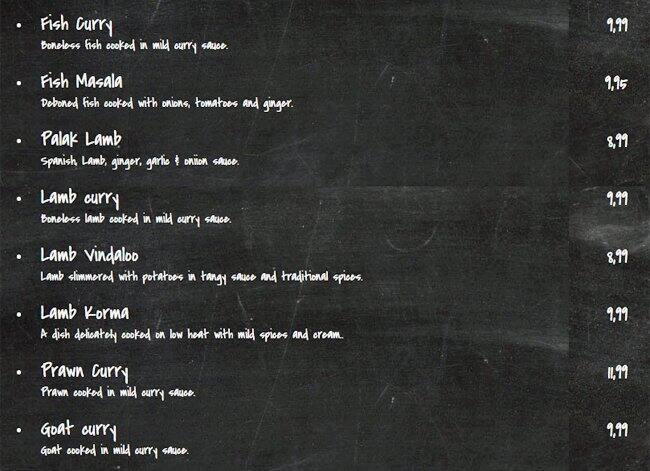 • Fish Curry 9,99
Boneless fish cooked in mild curry sauce.
• Fish Masala 9,95
Deboned fish cooked with onions, tomatoes and ginger.
• Palak Lamb 8,99
Spanish, Lamb, ginger, garlic & oniion sauce.
• Lamb curry 9,99
Boneless lamb cooked in mild curry sauce.
• Lamb Vindaloo 8,99
Lamb slimmered with potatoes in tangy sauce and traditional spices.
• Lamb Korma 9,99
A dish delicately cooked on low heat with mild spices and cream.
• Prawn Curry 11,99
Prawn cooked in mild curry sauce.
• Goat curry 9,99
Goat cooked in mild curry sauce.